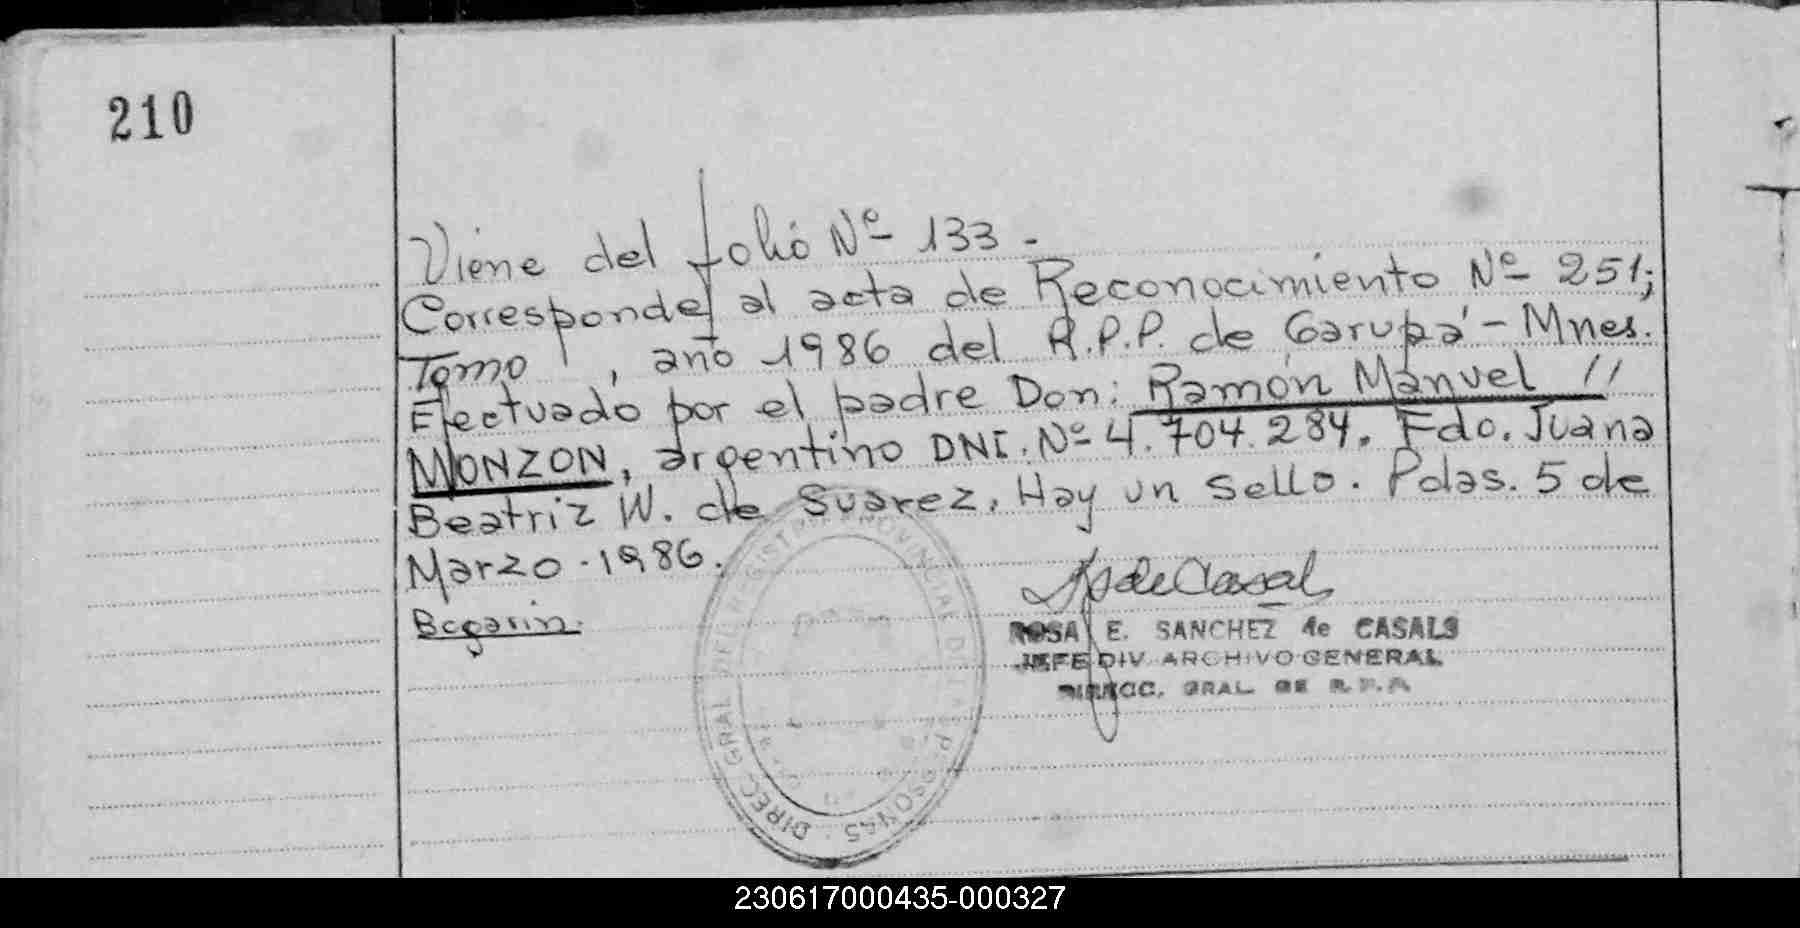 210
Viene del folio Nº 133.-
Corresponde al acta de Reconocimiento Nº 251;
Tomo I, año 1986 del R.P.P. de Garupá - Mnes.
Efectuado por el padre Don: Ramón Manuel //
MONZON, argentino DNI. Nº 4.704.284. Fdo. Juana
Beatriz W. de Suarez. Hay un sello. Pdas. 5 de
Marzo - 1986.
Bogarin.
ROSA E. SANCHEZ de CASALS
JEFE DIV. ARCHIVO GENERAL
DIRECC. GRAL. DE R.P.P.
DIRECC GRAL DEL REGISTRO PROVINCIAL DE LAS PERSONAS
230617000435-000327